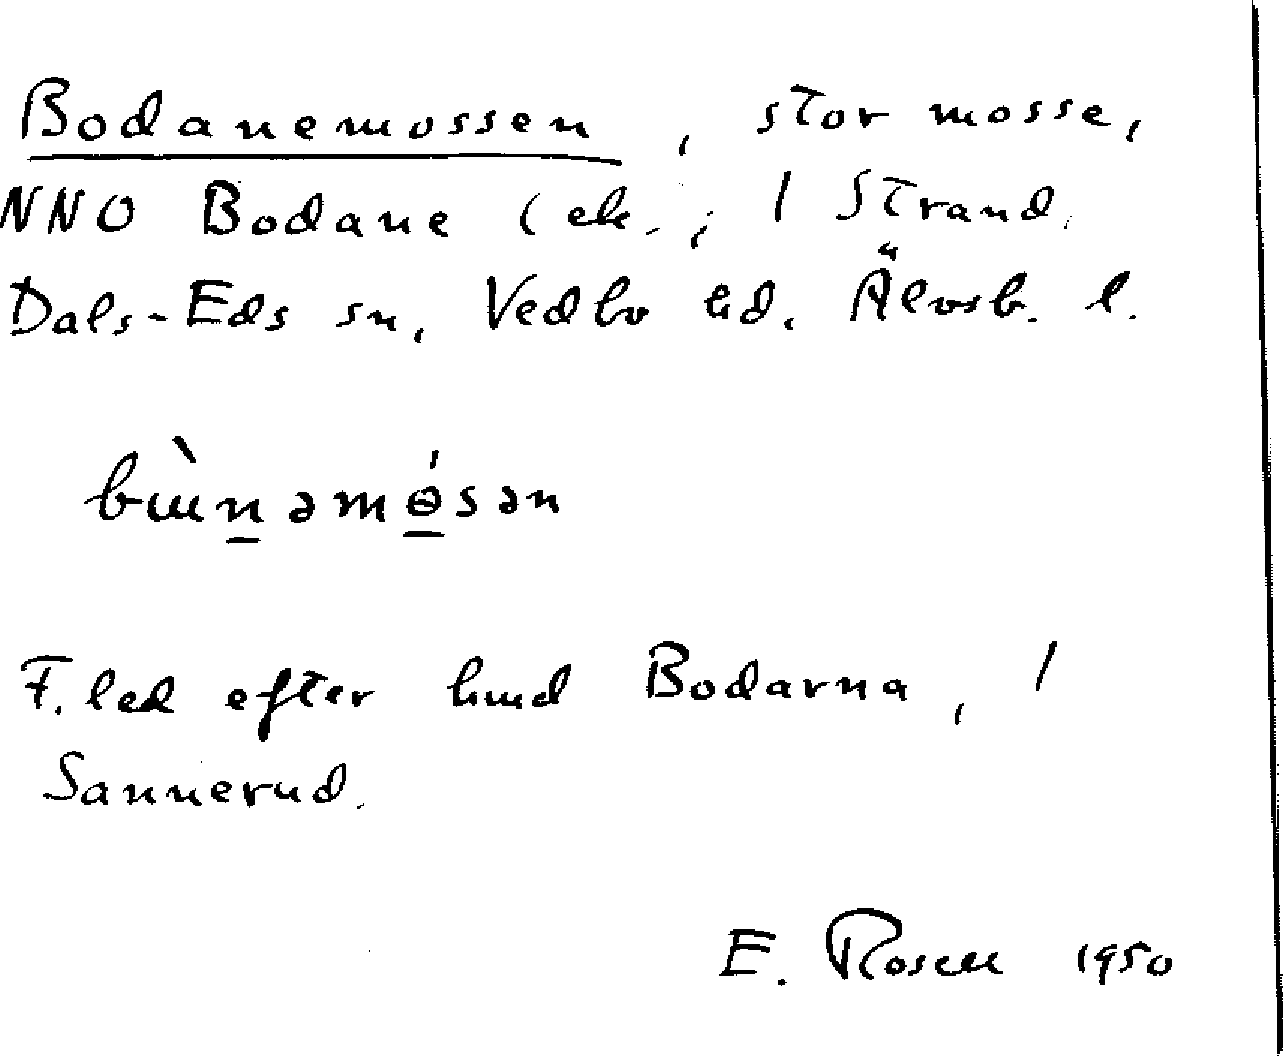 Bodanemossen, stor mosse,
NNO Bodane (ek., / Strand.
Dals-Eds sn, Vedbo hd. Älvsb. l.
bɯ̀n̲əmɵ̲́sən
F. led efter hmd Bodarna, /
Sannerud.
E. Rosell 1950